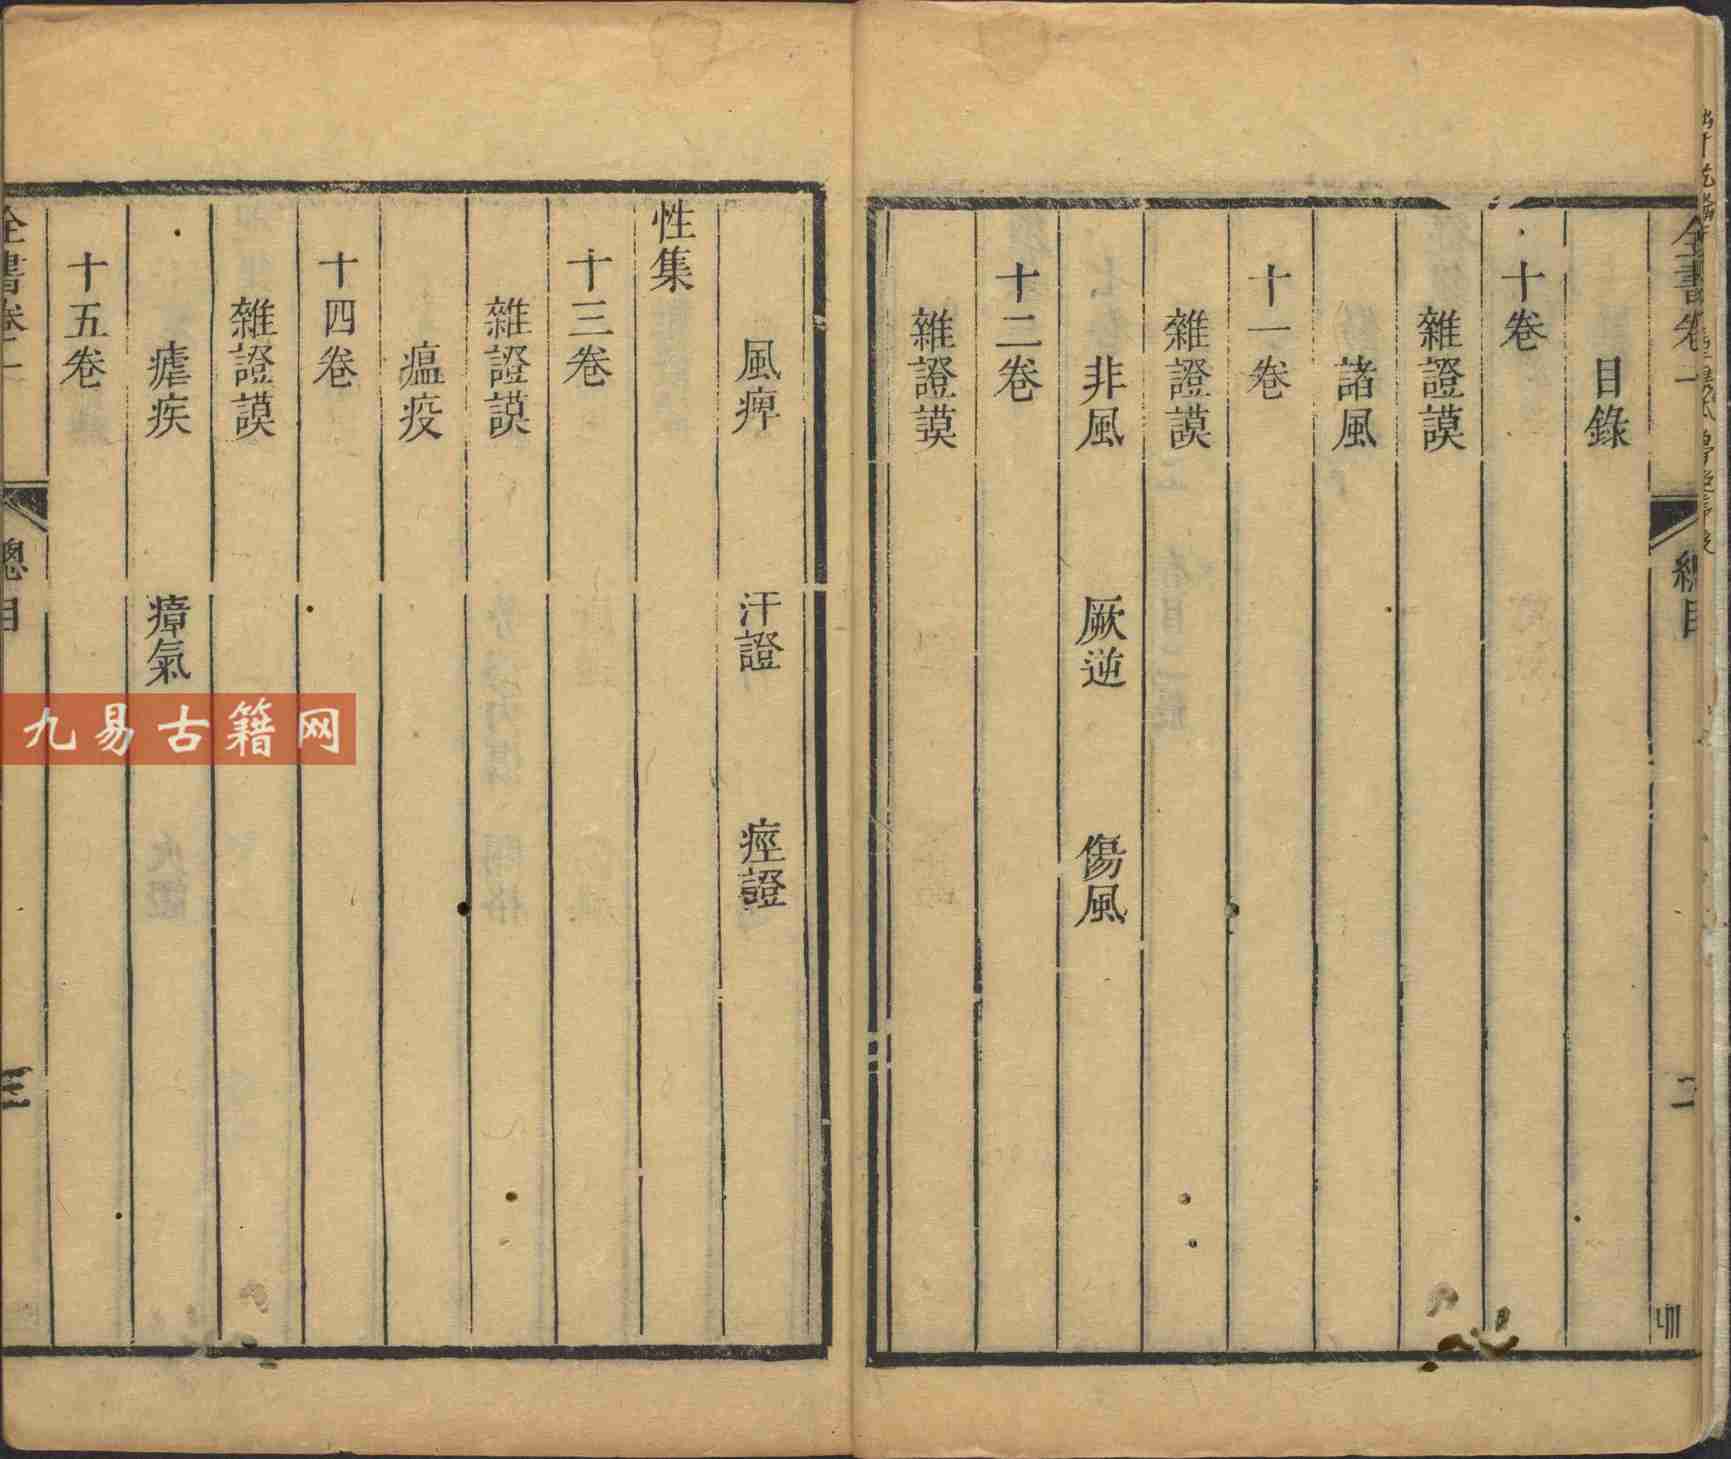 目錄
十卷
雜證謨
諸風
十一卷
雜證謨
非風 厥逆 傷風
十二卷
雜證謨
風痺 汗證 痙證
性集
十三卷
雜證謨
瘟疫
十四卷
雜證謨
瘧疾 瘴氣
十五卷
全書卷一
總目
二
全書卷一
總目
三
九易古籍网